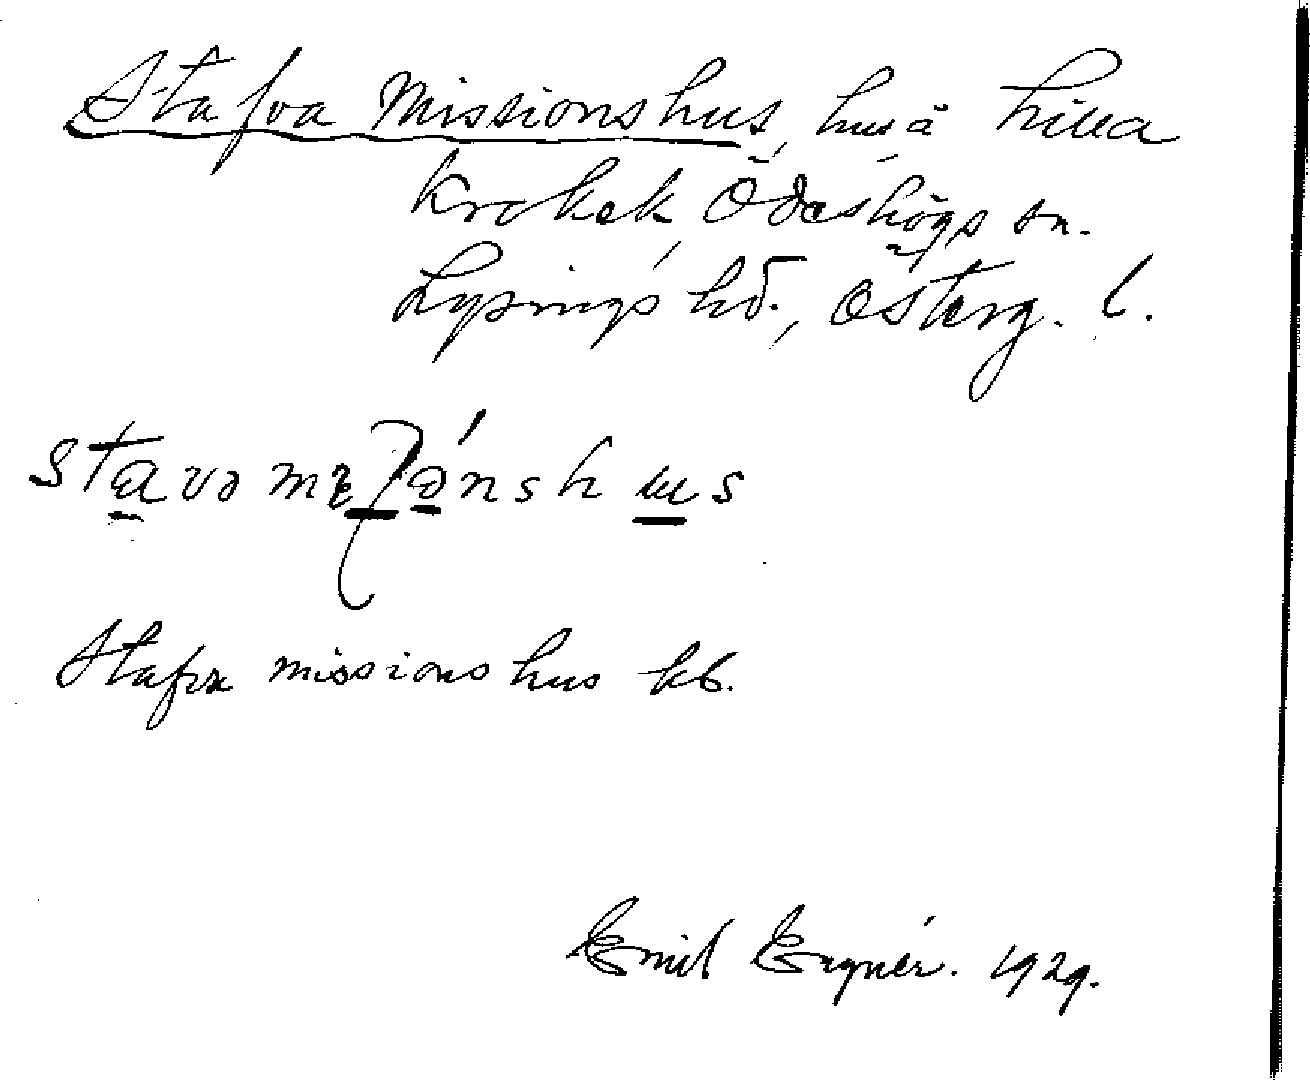 Stafva Missionshus, hus å lilla
Krokek, Ödeshögs sn.
Lysings hd., Österg. l.
stavə mɪʃə́nshus
Stafva missionshus kb.
Emil Engnér. 1929.